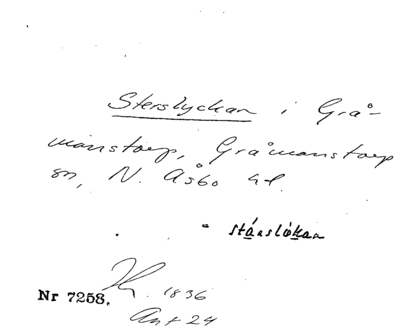 Sterslyckan i Grå-
manstorp, Gråmanstorp
sn, N. Åsbo hd.
stánslɔ̀kan
Nr 7258. 1836
Ant 24